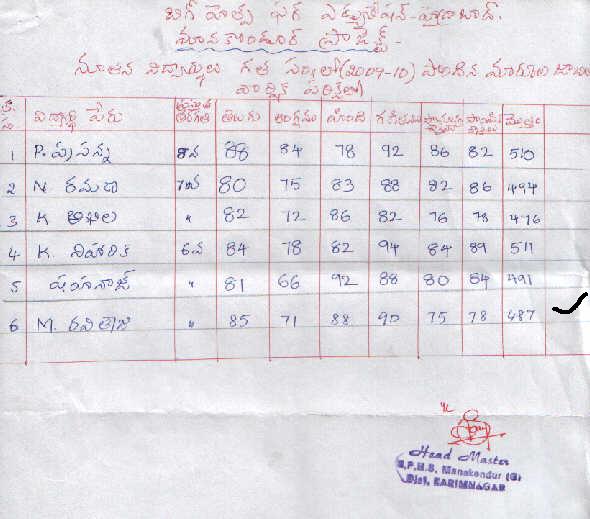 బిగ్ హెల్ప్ ఫర్ ఎడ్యుకేషన్-హైదరాబాద్.
మానకొండూర్ ప్రాజెక్ట్ -
నూతన విద్యార్థులు గత సం॥లో(2009-10) పొందిన మార్కుల జాబితా
వార్షిక పరీక్షలో)
విద్యార్థి పేరు తరగతి తెలుగు ఆంగ్లము హిందీ గణితము మొత్తం
1 P. ప్రసన్న 8వ 88 84 78 92 86 82 510
2 N. రమాదే 7వ 80 75 83 88 82 86 494
3 K అఖిల " 82 72 86 82 76 78 476
4 K. నిహారిక 6వ 84 78 82 94 84 89 511
5 షహనాజ్ " 81 66 92 88 80 84 491
6 M. రవితేజ " 85 71 88 90 75 78 487
Head Master
Z.P.H.S. Manakondur (G)
Dist. KARIMNAGAR